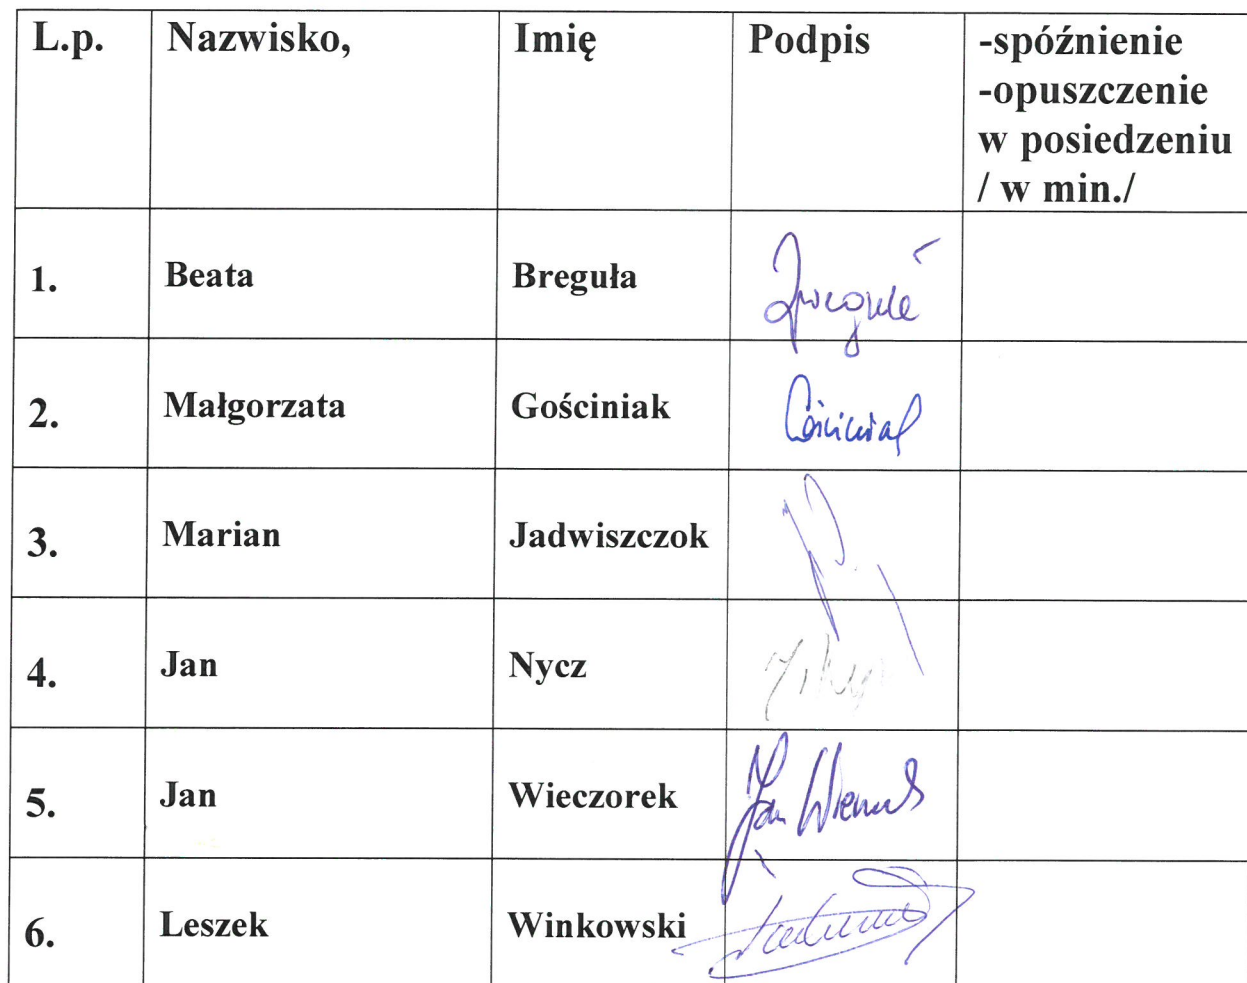 L.p. Nazwisko, Imię Podpis -spóźnienie
-opuszczenie
w posiedzeniu
/ w min./
1. Beata Breguła
2. Małgorzata Gościniak
3. Marian Jadwiszczok
4. Jan Nycz
5. Jan Wieczorek Jan
6. Leszek Winkowski